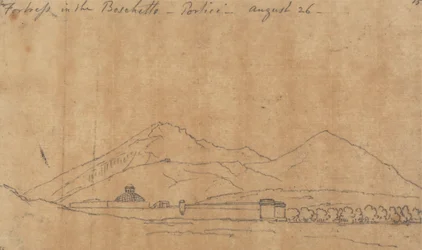 Fortress in the Boschetto - Portici - august 26 -